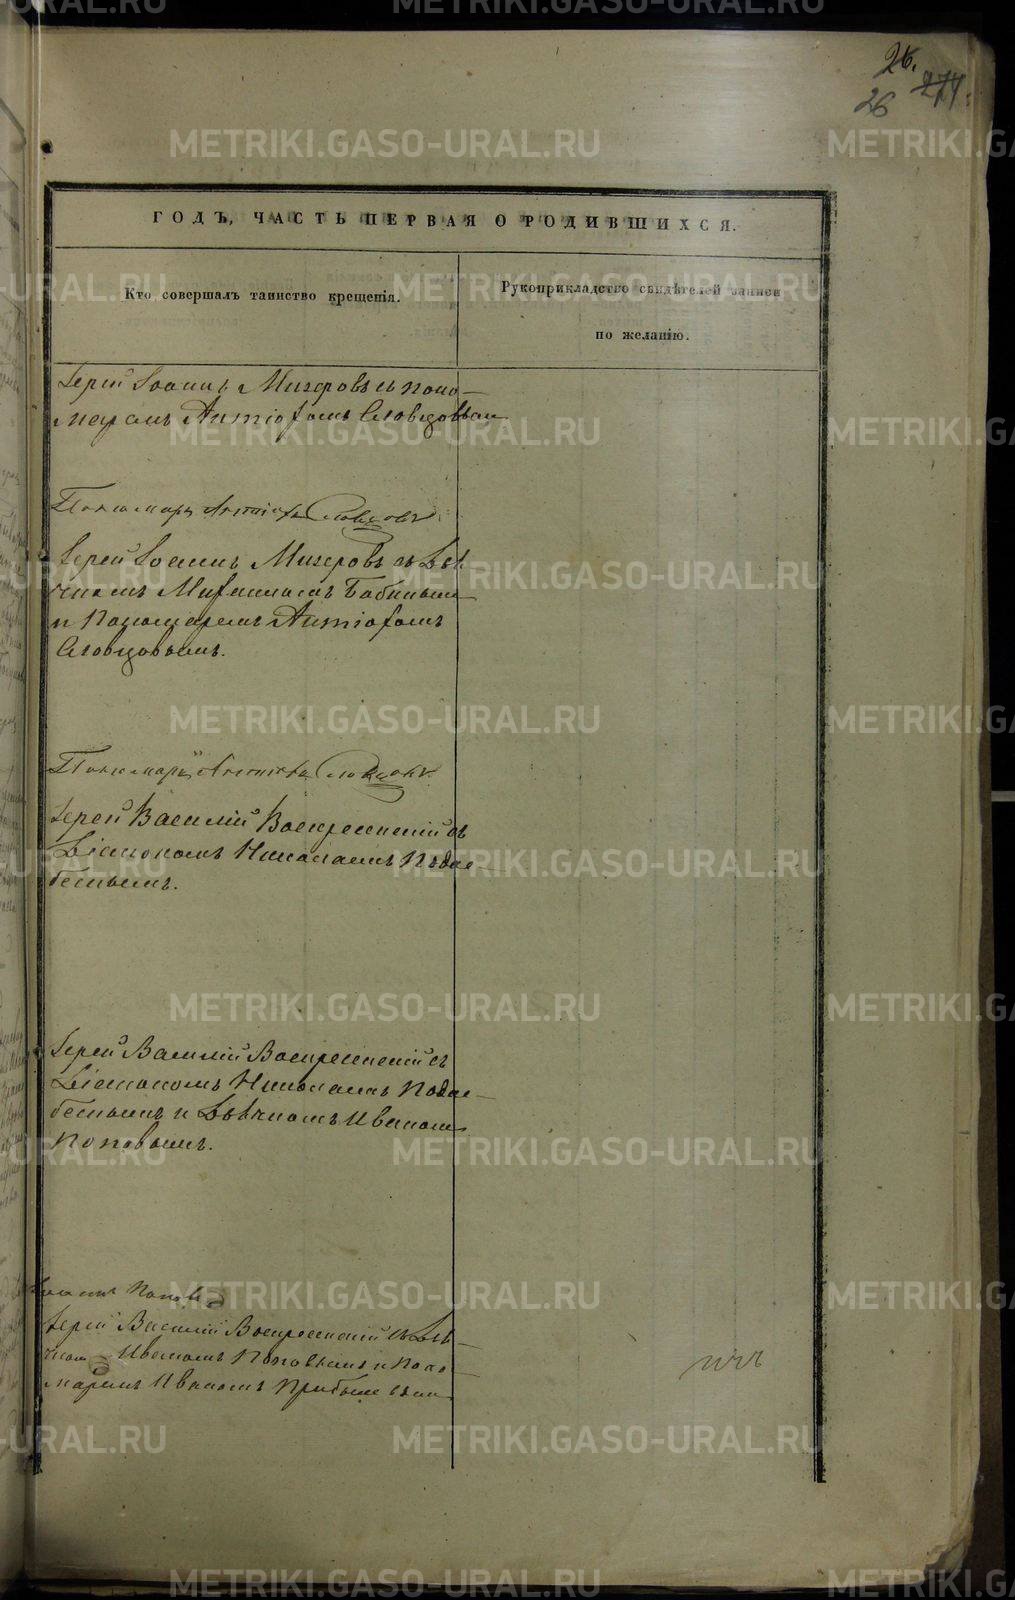 26.
26 274.
ГОДЪ, ЧАСТЬ ПЕРВАЯ О РОДИВШИХСЯ.
Кто совершалъ таинство крещенія.
Рукоприкладство свидѣтелей записи
по желанію.
Іерей Іоаннъ Мизеровъ съ поно-
маремъ Антіохомъ Словцовымъ
Пономарь Антіохъ Словцовъ
Іерей Іоаннъ Мизеровъ съ Дья-
чкомъ Михаиломъ Бабинымъ
и Пономаремъ Антіохомъ
Словцовымъ.
Пономарь Антіохъ Словцовъ
Іерей Василій Воскресенскій съ
Діакономъ Николаемъ Подъ-
бельнымъ.
Іерей Василій Воскресенскій съ
Діакономъ Николаемъ
и Дьячкомъ Иваномъ
Поповымъ.
Поповъ
Іерей Василій Воскресенскій съ Дья-
чкомъ Иваномъ Поповымъ и Поно-
маремъ Иваномъ
METRIKI.GASO-URAL.RU